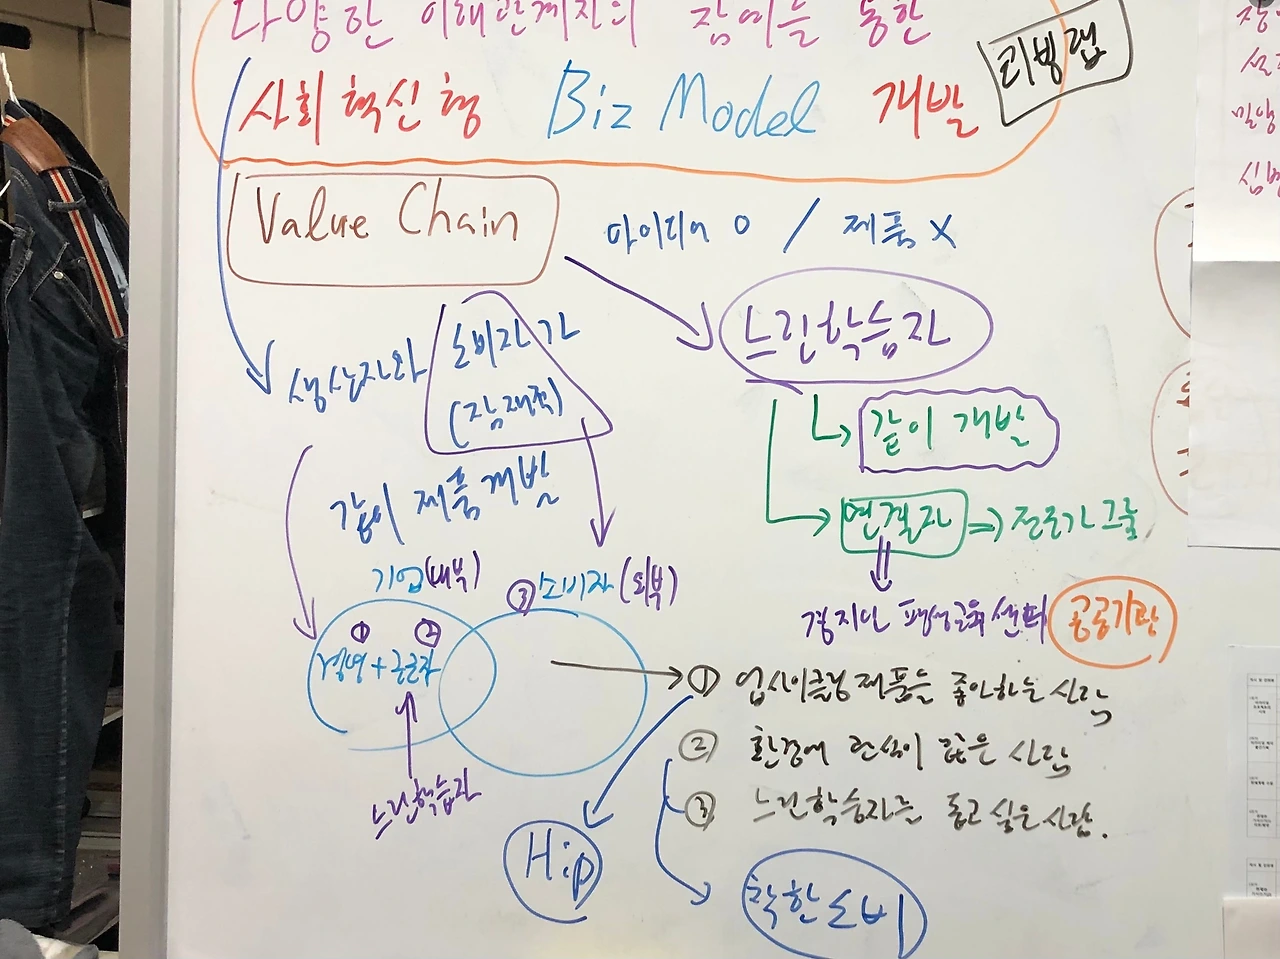 다양한 이해관계자의 참여를 통한
사회혁신형 Biz Model 개발
리빙랩
Value Chain
아이디어 O / 제품 X
느린학습자
생산자와 소비자가
(잠재적)
같이 제품개발
같이 개발
연결자 => 전문가 그룹
기업(내부)
③ 소비자(외부)
평생교육센터
공공기관
① ②
경영+근로자
느린학습자
① 업사이클링제품을 좋아하는 사람
② 환경에 관심이 많은 사람
③ 느린학습자를 돕고 싶은 사람.
Hip
착한소비